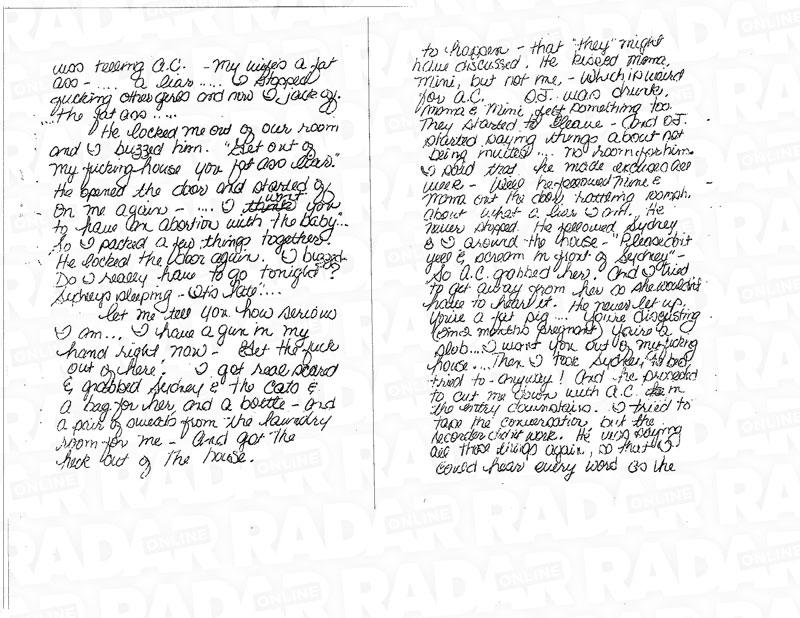 was telling A.C. - My wife's a fat
ass - .... a liar ..... I stopped
fucking other girls and now I jack off.
.. the fat ass ....
He locked me out of our room
and I buzzed him. "Get out of
my fucking house you fat ass liar."
He opened the door and started
on me again - .... I want you
to have an abortion with the baby"...
So I packed a few things together.
He locked the door again. I buzzed.
Do I really have to go tonight?
Sydneys sleeping - it's late"....
Let me tell you how serious
I am... I have a gun in my
hand right now - Get the fuck
out of here. I got real scared
& grabbed Sydney & the cats &
a bag for her and a bottle - and
a pair of sweats from the laundry
room for me - And got the
heck out of the house.
to happen - that "they" might
have discussed. He kissed Mama,
Mini, but not me. - Which is weird
for A.C. O.J. was drunk.
Mama & Mini felt something too.
They started to leave - and O.J.
started saying things about not
being invited .... no room for him
I said that he made excuses all
week - Well he followed Mini &
Mama out the door, rattling
about what a liar I am. He
never stopped. He followed Sydney
& I around the house - "Please don't
yell & scream in front of Sydney" -
So A.C. grabbed her. And I tried
to get away from her so she wouldn't
have to hear it. He never let up.
You're a fat pig .... You're disgusting
(I'm 2 months pregnant) you're a
slob ... I want you out of my fucking
house .... Then I took Sydney to bed
tried to - anyway! And he proceeded
to cut me down with A.C. in
the entry downstairs. I tried to
tape the conversation but the
recorder didn't work. He was saying
all those things again, so that I
could hear every word as he
RADAR
ONLINE